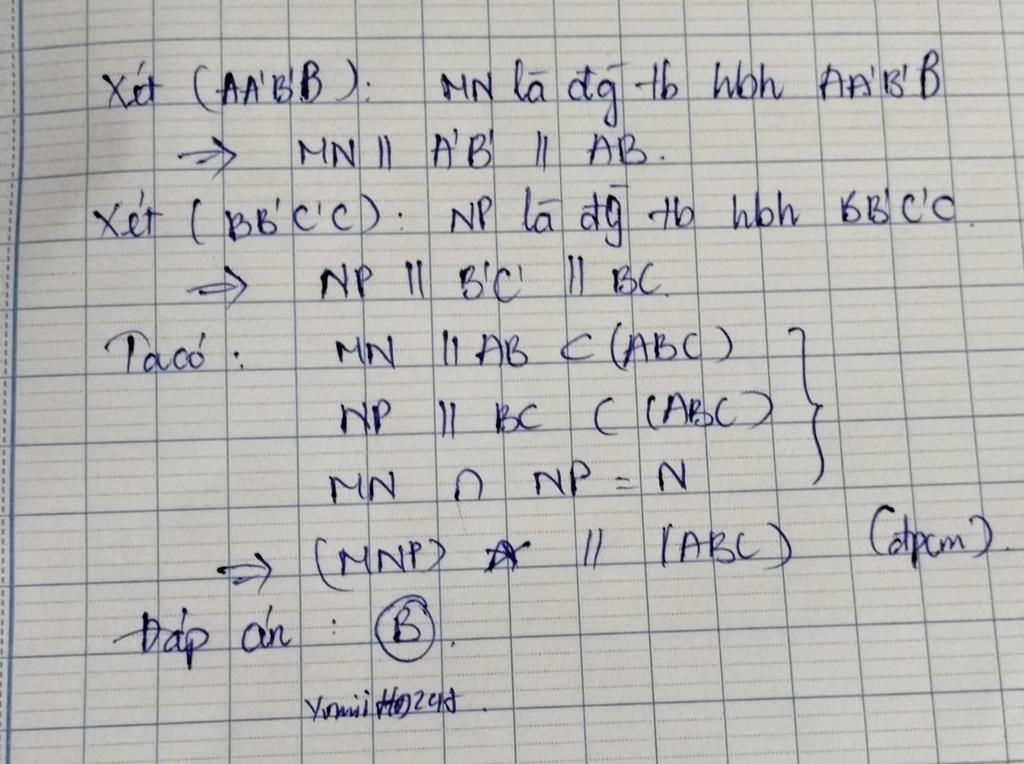 Xét (AA'B'B): MN là đg tb hbh AA'B'B
⇒ MN // A'B' // AB.
Xét (BB'C'C): NP là đg tb hbh BB'C'C.
⇒ NP // B'C' // BC.
Ta có: MN // AB ⊂ (ABC)
NP // BC ⊂ (ABC)
MN ∩ NP = N
⇒ (MNP) // (ABC) (đpcm).
Đáp án : B.